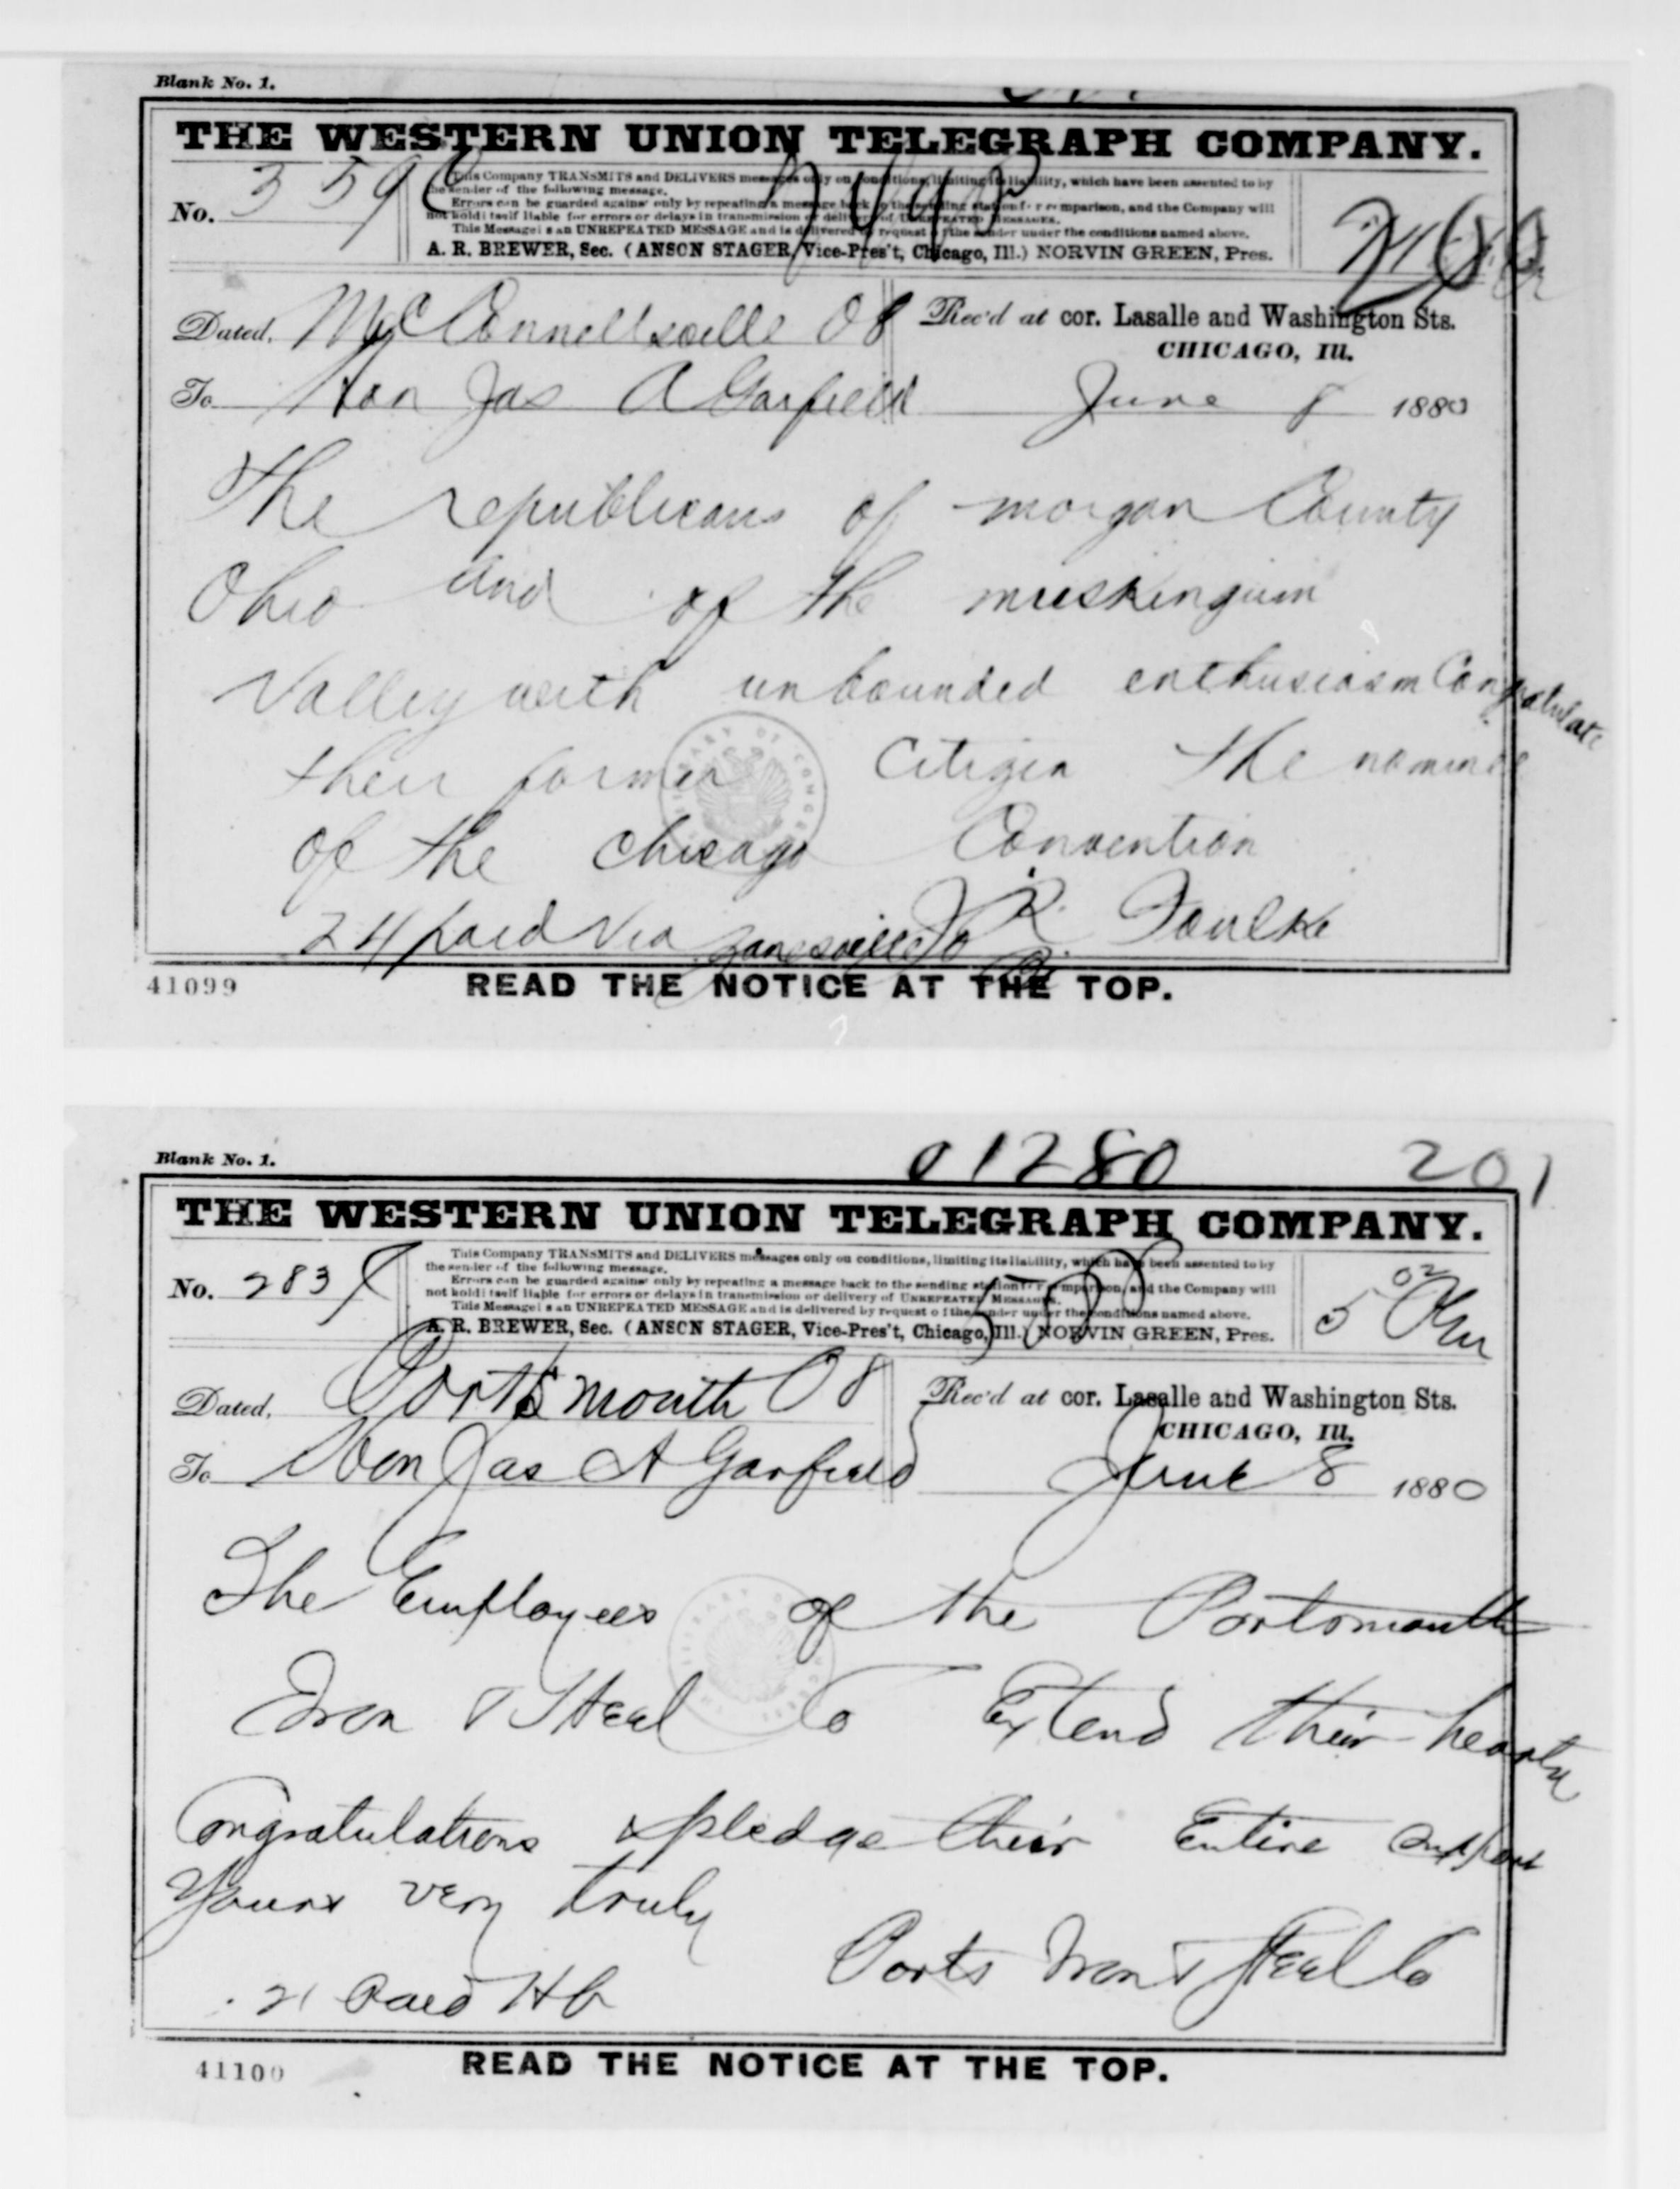 Blank No. 1.
THE WESTERN UNION TELEGRAPH COMPANY.
No. 359
This Company TRANSMITS and DELIVERS messages only on conditions, limiting its liability, which have been assented to by
the sender of the following message.
Errors can be guarded against only by repeating a message back to the sending station for comparison, and the Company will
not hold itself liable for errors or delays in transmission or delivery of UNREPEATED MESSAGES.
This Message is an UNREPEATED MESSAGE and is delivered by request of the sender under the conditions named above.
A. R. BREWER, Sec. (ANSON STAGER, Vice-Pres't, Chicago, Ill.) NORVIN GREEN, Pres.
Dated, McConnellsville O 8
Rec'd at cor. Lasalle and Washington Sts.
CHICAGO, Ill.
To Hon Jas A Garfield June 8 1880
The republicans of morgan County
Ohio and of the muskingum
Valley with unbounded enthusiasm Congratulate
their former Citizen the nominee
of the Chicago Convention
24 paid Via Zanesville O J R. Foulke
41099
READ THE NOTICE AT THE TOP.
01280 201
Blank No. 1.
THE WESTERN UNION TELEGRAPH COMPANY.
No. 283
This Company TRANSMITS and DELIVERS messages only on conditions, limiting its liability, which have been assented to by
the sender of the following message.
Errors can be guarded against only by repeating a message back to the sending station for comparison, and the Company will
not hold itself liable for errors or delays in transmission or delivery of UNREPEATED MESSAGES.
This Message is an UNREPEATED MESSAGE and is delivered by request of the sender under the conditions named above.
A. R. BREWER, Sec. (ANSON STAGER, Vice-Pres't, Chicago, Ill.) NORVIN GREEN, Pres.
Dated, Portsmouth O 8
Rec'd at cor. Lasalle and Washington Sts.
CHICAGO, Ill.
To Hon Jas A Garfield June 8 1880
The Employees of the Portsmouth
Iron & Steel Co Extend their hearty
Congratulations & pledge their Entire support
Yours very truly
Ports Iron & Steel Co
21 Paid
41100
READ THE NOTICE AT THE TOP.